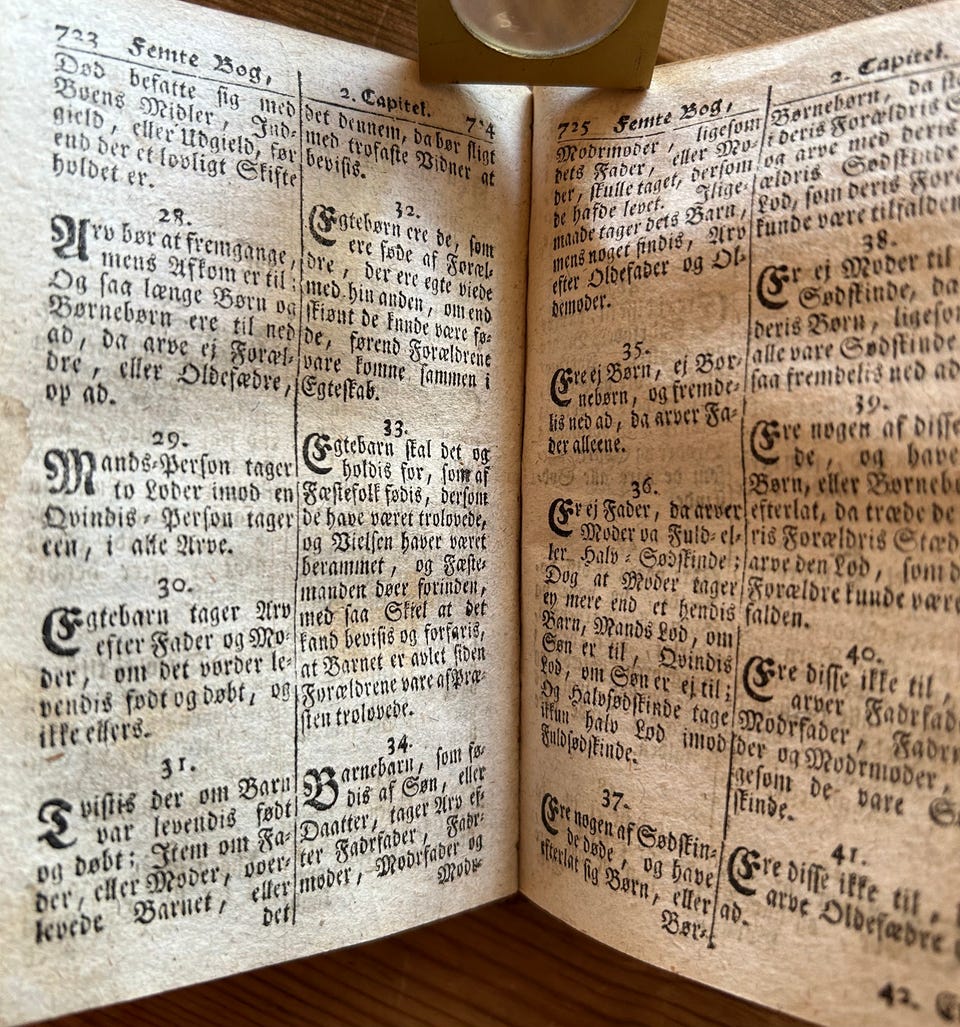 723 Femte Bog,
Død befatte sig med
Boens Midler, Ind-
gield, eller Udgield, før
end der et lovligt Skifte
holdet er.
28.
Arv bør at fremgange,
mens Afkom er til:
Og saa længe Børn og
Børnebørn ere til ned
ad, da arve ej Foræl-
dre, eller Oldefædre,
op ad.
29.
Mands-Person tager
to Loder imod en
Qvindis-Person tager
een, i alle Arve.
30.
Egtebarn tager Arv
efter Fader og Mo-
der, om det vorder le-
vendis født og døbt, og
ikke ellers.
31.
Tvistis der om Barn
var levendis født
og døbt; Item om Fa-
der, eller Moder, over-
levede Barnet, eller
det
2. Capitel. 724
det dennem, da bør sligt
med trofaste Vidner at
bevisis.
32.
Egtebørn ere de, som
ere føde af Foræl-
dre, der ere egte viede
med hin anden, om end
skiønt de kunde være fø-
de, førend Forældrene
vare komne sammen i
Egteskab.
33.
Egtebarn skal det og
holdis for, som af
Fæstefolk fødis, dersom
de have været trolovede,
og Vielsen haver været
berammet, og Fæste-
manden døer forinden,
med saa Skiel at det
kand bevisis og forfaris,
at Barnet er avlet siden
Forældrene vare af Præ-
sten trolovede.
34.
Barnebarn, som fø-
dis af Søn, eller
Daatter, tager Arv ef-
ter Fadrfader, Fadr-
moder, Modrfader og
Modr-
725 Femte Bog,
Modrmoder, ligesom
dets Fader, eller Mo-
der, skulle taget, dersom
de hafde levet. Ilige-
maade tager dets Barn,
mens noget findis, Arv
efter Oldefader og Ol-
demoder.
35.
Ere ej Børn, ej Bør-
nebørn, og fremde-
lis ned ad, da arver Fa-
der alleene.
36.
Er ej Fader, da arver
Moder og Fuld- el-
ler Halv-Sødskinde;
Dog at Moder tager
ey mere end et hendis
Barn, Mands Lod, om
Søn er til, Qvindis
Lod, om Søn er ej til;
Og Halvsødskinde tage
ikun halv Lod imod
Fuldsødskinde.
37.
Ere nogen af Sødskin-
de døde, og have
efterlat sig Børn, eller
Bør-
2. Capitel.
Børnebørn, da
i deris Forældris
og arve med deris
ældris Sødskinde
Lod, som deris
kunde være tilfalden
38.
Er ej Moder til
Sødskinde, da
deris Børn, ligesom
alle vare Sødskinde
saa fremdelis ned ad
39.
Ere nogen af disse
de, og have
Børn, eller
efterlat, da træde de
ris Forældris
arve den Lod, som
Forældre kunde
falden.
40.
Ere disse ikke til,
arver
Modrfader,
der og Modrmoder,
gesom de vare
skinde.
41.
Ere disse ikke til,
arve Oldefædre
ad.
42.